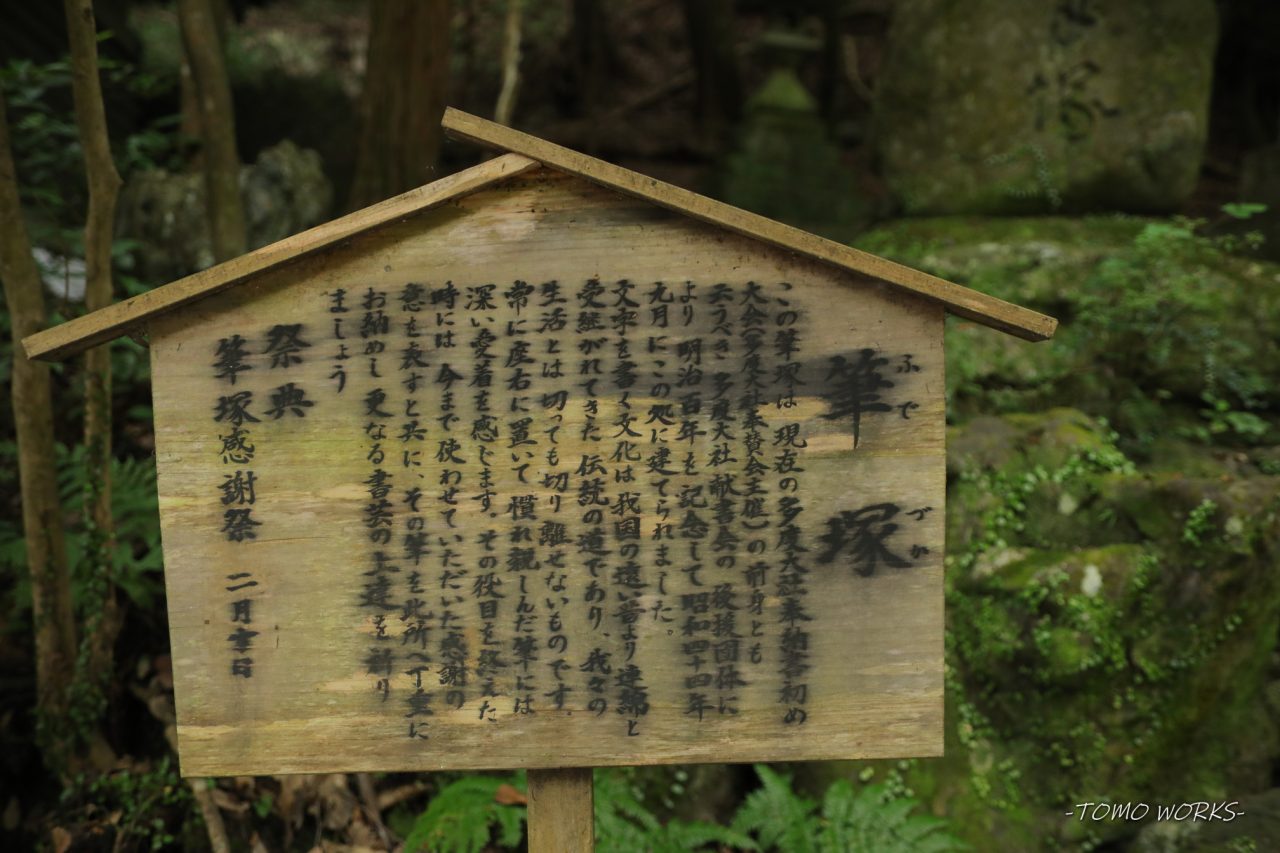 筆塚
ふで づか
この筆塚は 現在の多度大社奉納書初め
大会(多度大社奉賛会主催)の前身とも
云うべき 多度大社献書会の 後援団体に
より 明治百年を記念して 昭和四十四年
九月にこの処に建てられました。
文字を書く文化は我国の遠い昔より連綿と
受継がれてきた 伝統の道であり、我々の
生活とは 切っても切り離せないものです。
常に座右に置いて 慣れ親しんだ筆には
深い愛着を感じます。その役目を終えた
時には 今まで使わせていただいた感謝の
意を表すと共に、その筆を此所へ丁重に
お納めし 更なる書芸の上達を祈り
ましょう
祭典
筆塚感謝祭 二月吉日
塚
-TOMO WORKS-